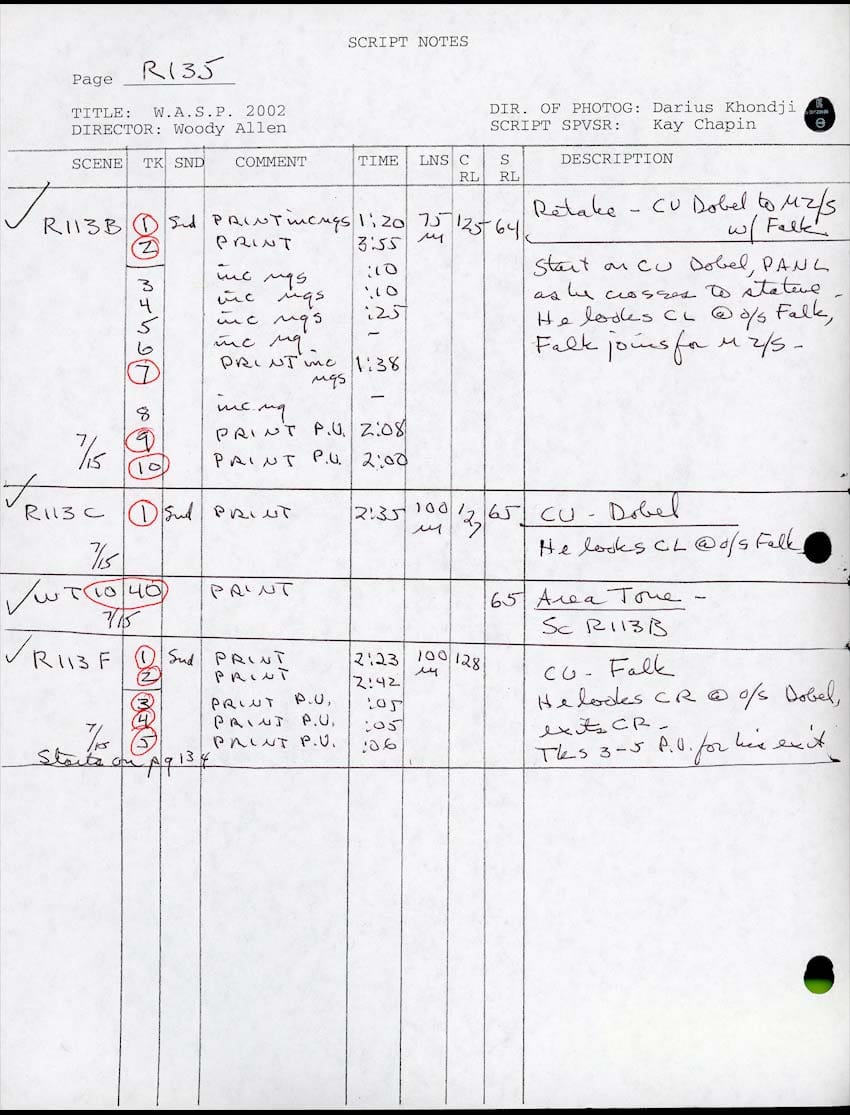 SCRIPT NOTES
Page R135
TITLE: W.A.S.P. 2002 DIR. OF PHOTOG: Darius Khondji
DIRECTOR: Woody Allen SCRIPT SPVSR: Kay Chapin
SCENE TK SND COMMENT TIME LNS C RL S RL DESCRIPTION
Retake - CU Dobel to M2/S
R113B 1 Snd PRINT inc ngs 1:20 75 125 64 w/ Falk
2 PRINT 3:55
Start on CU Dobel, PAN L
3 inc ngs :10
4 inc ngs :10 as he crosses to statue -
5 inc ngs :25 He looks CL @ o/s Falk,
6 inc ng -
7 PRINT inc 1:38 Falk joins for M 2/S -
ngs
8 inc ng -
9 PRINT P.U. 2:08
7/15 10 PRINT P.U. 2:00
R113C 1 Snd PRINT 2:35 100 127 65 CU - Dobel
7/15 He looks CL @ o/s Falk
WT 1040 PRINT 65 Area Tone -
7/15 Sc R113B
R113F 1 Snd PRINT 2:23 100 128 CU - Falk
2 PRINT 2:42
3 PRINT P.U. :05 He looks CR @ o/s Dobel,
4 PRINT P.U. :05 exits CR -
7/15 5 PRINT P.U. :06 Tks 3-5 P.U. for his exit
Starts on pg 134